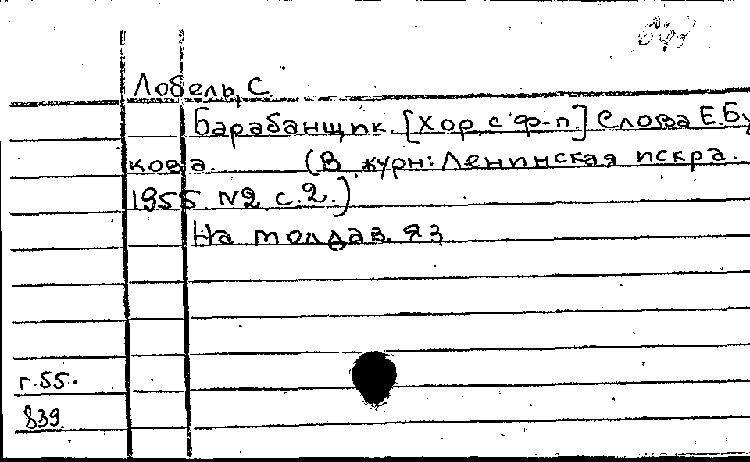 Лобель, С.
Барабанщик. [Хор с ф-п.] Слова Е. Бу
кова. (В журн: Ленинская искра.
1955. №2. с.2.)
На молдав. яз
г.55.
839